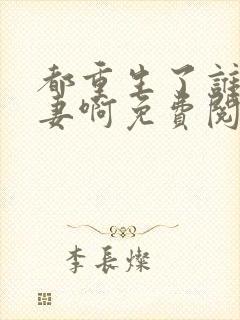 都重生了誰
妻啊免費閱
李長燦